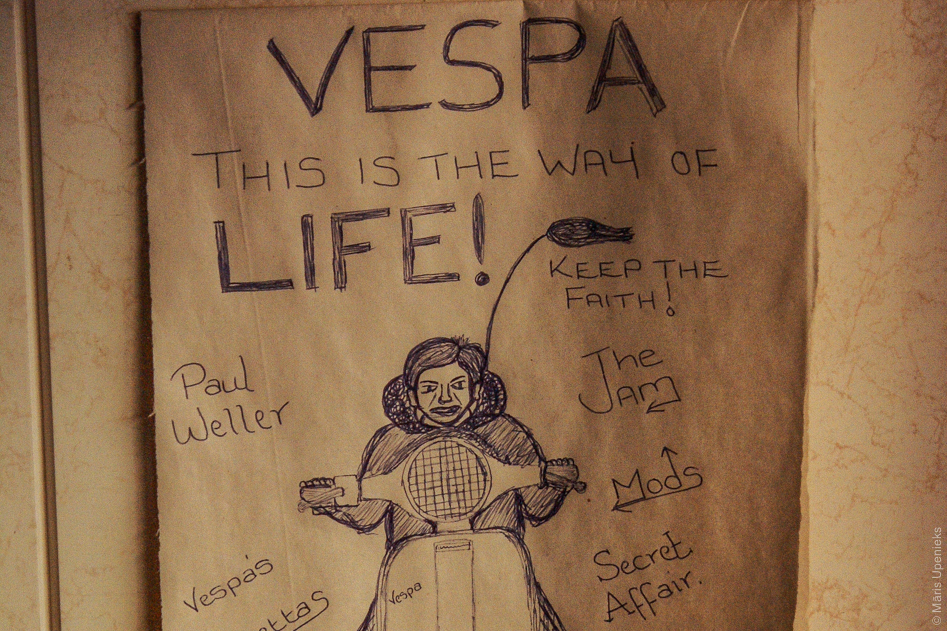 VESPA
THIS IS THE WAY OF
LIFE!
KEEP THE
FAITH!
Paul
Weller
The
JAM
Mods
Secret
Affair.
Vespa's
Vespa
© Māris Upenieks